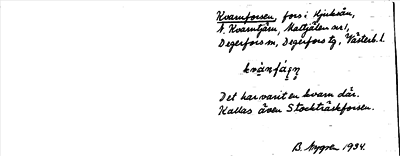 Kvarnforsen, fors i Kjuksån,
N. Kvarntjärn, Maltjälen nr 1,
Degerfors sn, Degerfors tg, Västerb. l.
Det har varit en kvarn där.
Kallas även Stockträskforsen.
B. Nygren 1934.